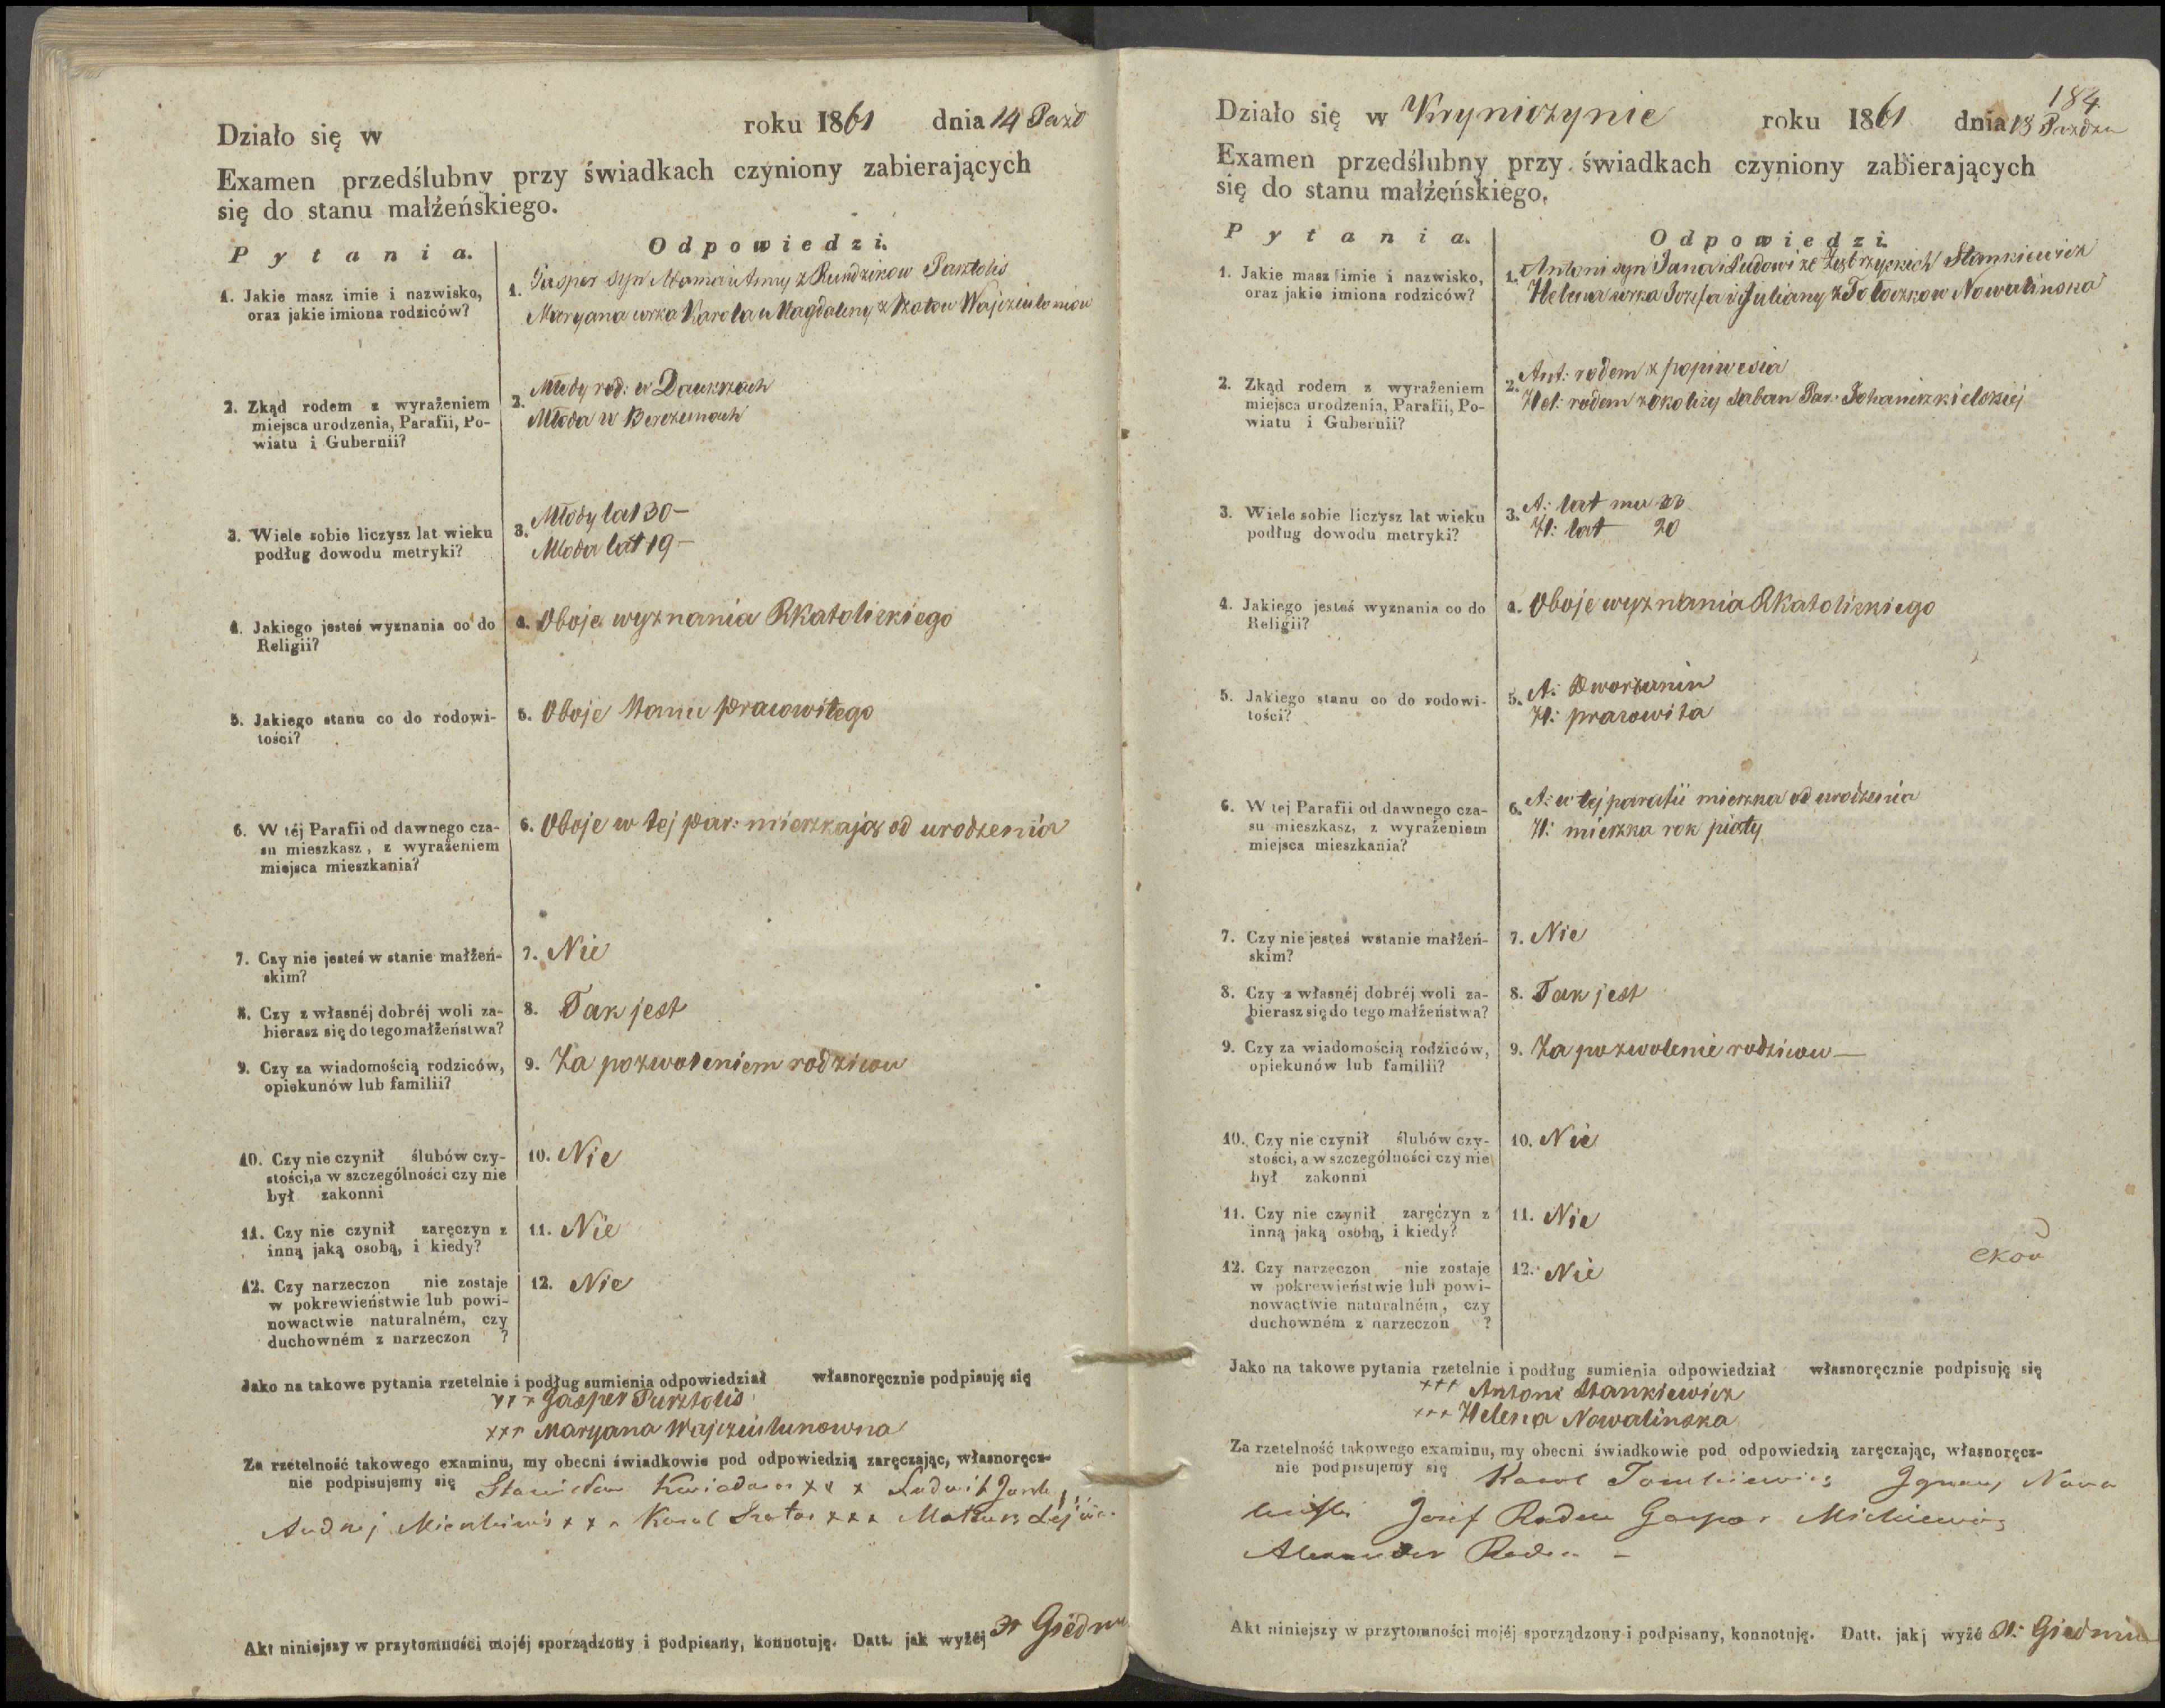 Działo się w roku 1861 dnia 14 Paźd
Examen przedślubny przy świadkach czyniony zabierających
się do stanu małżeńskiego.
Pytania. Odpowiedzi.
1. Jakie masz imie i nazwisko,
oraz jakie imiona rodziców?
1. Gasper syn Adama i Anny z Rundzikow
Maryana corka Karola u Magdaleny z
2. Zkąd rodem z wyrażeniem
miejsca urodzenia, Parafii, Po-
wiatu i Gubernii?
2. Młody rod: w
Młoda w
3. Wiele sobie liczysz lat wieku
podług dowodu metryki?
3. Młody lat 30 –
Młoda lat 19 –
4. Jakiego jesteś wyznania co do
Religii?
4. Oboje wyznania RKatolickiego
5. Jakiego stanu co do rodowi-
tości?
5. Oboje stanu pracowitego
6. W téj Parafii od dawnego cza-
su mieszkasz, z wyrażeniem
miejsca mieszkania?
6. Oboje w tej par: mieszkają od urodzenia
7. Czy nie jesteś w stanie małżeń-
skim?
7. Nie
8. Czy z własnéj dobréj woli za-
bierasz się do tego małżeństwa?
8. Tak jest
9. Czy za wiadomością rodziców,
opiekunów lub familii?
9. Za pozwoleniem rodzicow
10. Czy nie czynił ślubów czy-
stości, a w szczególności czy nie
był zakonni
10. Nie
11. Czy nie czynił zaręczyn z
inną jaką osobą, i kiedy?
11. Nie
12. Czy narzeczon nie zostaje
w pokrewieństwie lub powi-
nowactwie naturalném, czy
duchowném z narzeczon ?
12. Nie
Jako na takowe pytania rzetelnie i podług sumienia odpowiedział własnoręcznie podpisuję się
xxx Gasper
xxx Maryana
Za rzetelność takowego examinu, my obecni świadkowie pod odpowiedzią zaręczając, własnoręcz-
nie podpisujemy się Stanisław xxx Ludwik
Andrzej xxx Karol xxx
Akt niniejszy w przytomności mojéj sporządzony i podpisany, konnotuję. Datt. jak wyżéj
184
Działo się w Kryniczynie roku 1861 dnia 13
Examen przedślubny przy świadkach czyniony zabierających
się do stanu małżeńskiego.
Pytania. Odpowiedzi.
1. Jakie masz imie i nazwisko,
oraz jakie imiona rodziców?
1. Antoni syn Jana i Ludowi ze Stankiewicz
Helena corka Jozefa i Juliany z Nowalinska
2. Zkąd rodem z wyrażeniem
miejsca urodzenia, Parafii, Po-
wiatu i Gubernii?
2. Ant: rodem z
Hel: rodem z okolicy Par: Johaniszkielskiej
3. Wiele sobie liczysz lat wieku
podług dowodu metryki?
3. A: lat ma
H: lat 20
4. Jakiego jesteś wyznania co do
Religii?
4. Oboje wyznania RKatolickiego
5. Jakiego stanu co do rodowi-
tości?
5. A: Dworzanin
H: pracowita
6. W tej Parafii od dawnego cza-
su mieszkasz, z wyrażeniem
miejsca mieszkania?
6. A: w tej parafii mieszka od urodzenia
H: mieszka rok piąty
7. Czy nie jesteś wstanie małżeń-
skim?
7. Nie
8. Czy z własnéj dobréj woli za-
bierasz się do tego małżeństwa?
8. Tak jest
9. Czy za wiadomością rodziców,
opiekunów lub familii?
9. Za pozwolenie rodzicow –
10. Czy nie czynił ślubów czy-
stości, a w szczególności czy nie
był zakonni
10. Nie
11. Czy nie czynił zaręczyn z
inną jaką osobą, i kiedy?
11. Nie
12. Czy narzeczon nie zostaje
w pokrewieństwie lub powi-
nowactwie naturalném, czy
duchowném z narzeczon ?
12. Nie
Jako na takowe pytania rzetelnie i podług sumienia odpowiedział własnoręcznie podpisuję się
xxx Antoni Stankiewicz
xxx Helena Nowalinska
Za rzetelność takowego examinu, my obecni świadkowie pod odpowiedzią zaręczając, własnoręcz-
nie podpisujemy się Karol Tomkiewicz Ignacy Nowa
linski Jozef Gasper Mickiewicz
Alexander
Akt niniejszy w przytomności mojéj sporządzony i podpisany, konnotuję. Datt. jakj wyżé